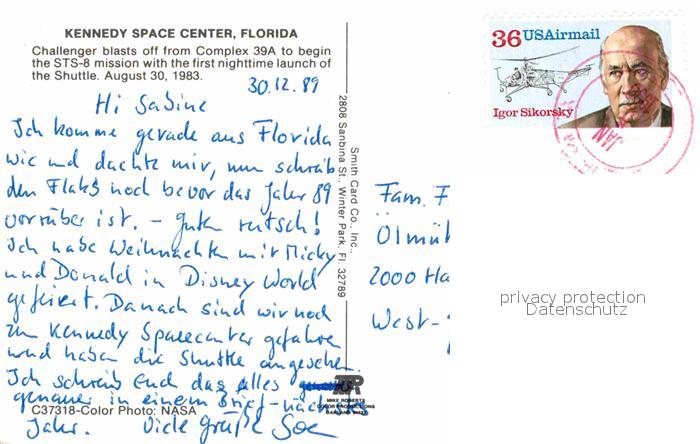 KENNEDY SPACE CENTER, FLORIDA
Challenger blasts off from Complex 39A to begin
the STS-8 mission with the first nighttime launch of
the Shuttle. August 30, 1983.
30.12.89
Hi Sabine
Ich komme gerade aus Florida
wie und dachte mir, nun schreib
den Flaks noch bevor das Jahr 89
vorrüber ist. – Guten rutsch!
Ich habe Weihnachten mit Micky
und Donald in Disney World
gefeiert. Danach sind wir noch
zum Kennedy Spacecenter gefahren
und haben die Shuttle angesehen.
Ich schreib Euch das alles
genauer in einem Brief nächstes
Jahr. Viele Grüße
C37318-Color Photo: NASA
MIKE ROBERTS
COLOR PRODUCTIONS
Smith Card Co., Inc.,
2808 Sanbina St., Winter Park, Fl. 32789
36 USAirmail
Igor Sikorsky
Fam. F
Ölmüh
2000 Ha
West-
privacy protection
Datenschutz